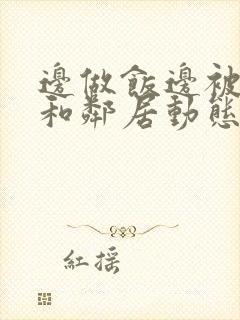 邊做飯邊被
和鄰居動態
紅搖